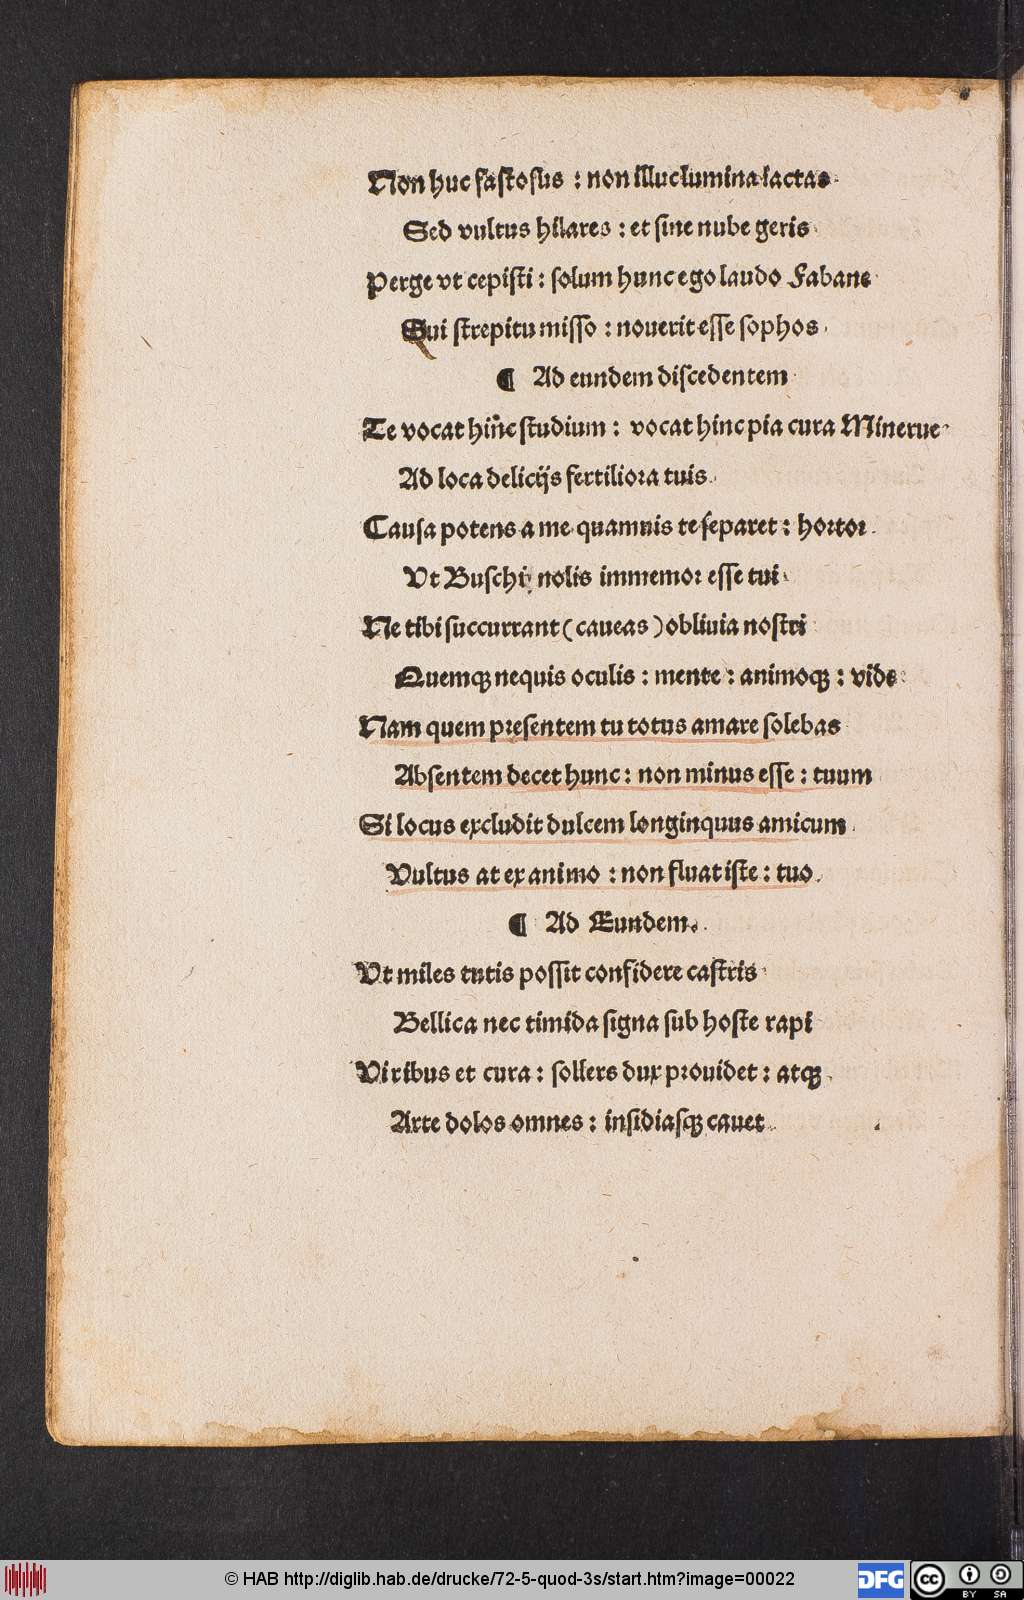 Non huc fastosus : non illuc lumina iactas.
Sed vultus hilares : et sine nube geris
Perge vt cepisti : solum hunc ego laudo Fabane
Qui strepitu misso : nouerit esse sophos.
¶ Ad eundem discedentem
Te vocat hinc studium : vocat hinc pia cura Minerue
Ad loca delicijs fertiliora tuis.
Causa potens a me quamuis te separet : hortor.
Vt Buschi nolis immemor esse tui
Ne tibi succurrant ( caueas ) obliuia nostri
Quemqꝫ nequis oculis : mente : animoqꝫ : vide
Nam quem presentem tu totus amare solebas
Absentem decet hunc : non minus esse : tuum
Si locus excludit dulcem longinquus amicum.
Vultus at ex animo : non fluat iste : tuo.
¶ Ad Eundem.
Vt miles tutis possit confidere castris
Bellica nec timida signa sub hoste rapi
Viribus et cura : sollers dux prouidet : atqꝫ.
Arte dolos omnes : insidiasqꝫ cauet.
© HAB http://diglib.hab.de/drucke/72-5-quod-3s/start.htm?image=00022
DFG
cc
BY SA